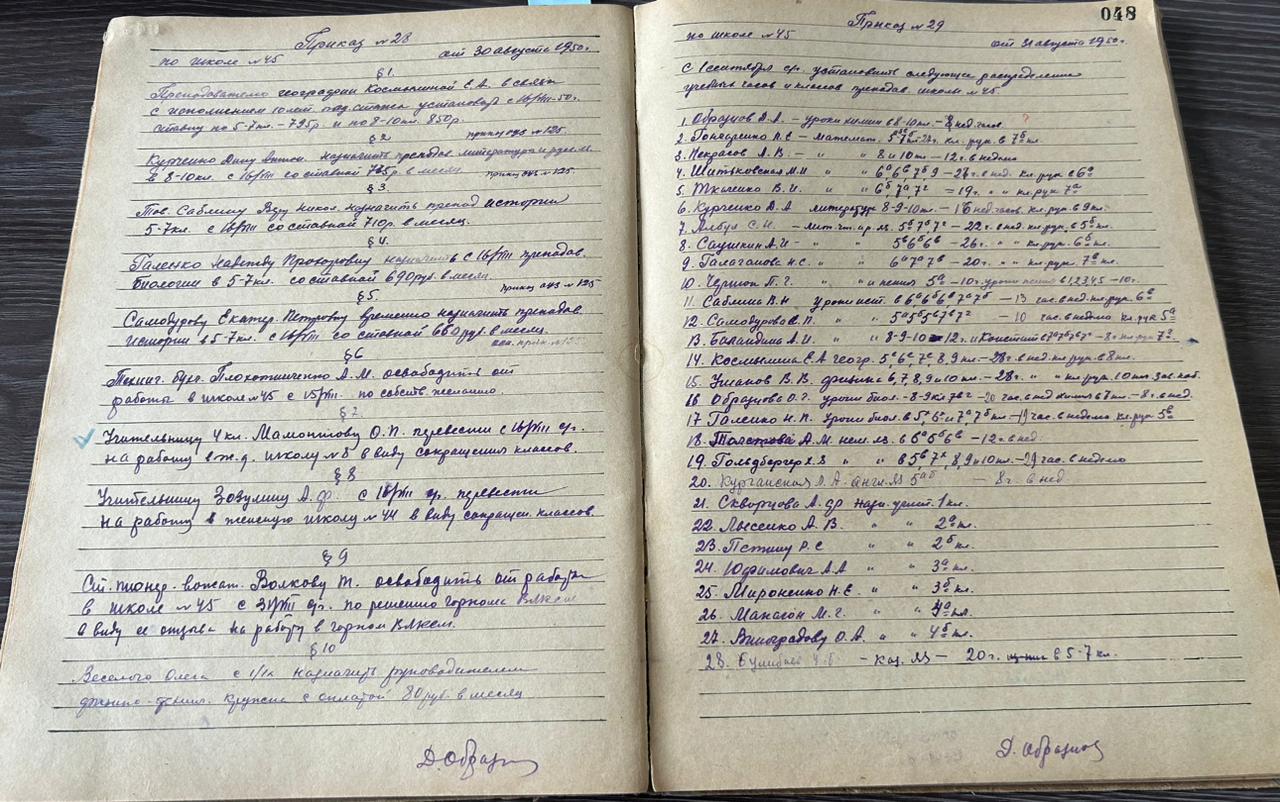 Приказ №28
по школе №45 от 30 августа 1950г.
§1.
Преподавателю географии Космыниной Е.А. в связи
с исполнением 10 лет пед. стажа установить с 16/VIII-50г.
ставку по 5-7кл.-795р. и по 8-10кл. 850р.
§2 приказ № 125.
Курченко Дину Антон. назначить преподав. литературы и русск.
в 8-10кл. с 16/VIII со ставкой 785р. в месяц. приказ № 125.
§3.
Тов. Саблину Веру Никол. назначить препод истории
5-7кл. с 16/VIII со ставкой 710р. в месяц.
§4.
Галенко Прокоровну назначить с 16/VIII преподав.
биологии в 5-7кл. со ставкой 690руб. в месяц.
§5. приказ № 125
Самодурову Екатер. Петровну временно назначить преподав
истории в 5-7кл. с 16/VIII со ставкой 660руб. в месяц.
§6
Плохотниченко А.М. освободить от
работы в школе №45 с 15/VIII. по собств. желанию.
§7
Учительницу 4кл. Мамонтову О.П. перевести с 16/VIII ср.
на работу в ж.д. школу №8 в виду сокращения классов.
§8
Учительницу Зозулину А.Ф. с 16/VIII ср. перевести
на работу в женскую школу №44 в виду сокращен. классов.
§9
Ст. пионер-вожат. Волкову Т. освободить от работы
в школе №45 с 31/VIII ср. по решению горкома ВЛКСМ
в виду ее отзыва на работу в горком ВЛКСМ.
§10
Веселого Олега с 1/IX назначить руководителем
кружка с оплатой 80руб. в месяц
Д. Образцов
048
Приказ №29
по школе №45 от 31 августа 1950г.
С 1 сентября ср. установить следующее распределение
учебных часов и классов преподав. школы №45.
1. Образцов Д.А. – уроки химии в 8-10кл. – 8 нед. часов. ?
2. Гончаренко П.Е – математ. кл. рук. в 7б кл.
3. Некрасов А.В – " " 8 и 10 кл – 12г. в неделю
4. Шитьковская М.И " " 6а 6в 7б 9 – в нед. кл. рук в 6а
5. Ткаченко В.И. " " 6б 7а 7г = 19г. " " кл. рук 7а
6. Курченко Д.А литература 8-9-10кл. – 16 нед. часов. кл. рук в 9кл.
7. Албул С.Н. – 5б 7б 7г – 22г. в нед. кл. рук. в 5б кл.
8. Саушкин А.И – " " 5в 6б 6в – 26г. " " кл. рук. 6б кл.
9. Галаганова Н.С. " " 6а 7а 7в – 20г. " " кл. рук. 7в кл.
10. П.Г. " " и пения 5а – 10г. уроки пения в 12345 – 10г.
11. Саблина В.Н Уроки ист. в 6а 6б 6в 7а 7б – 13 час. в нед. кл. рук. 6в
12. Самодурова Е.П. " " 5а 5б 5в 7в 7г – 10 час. в неделю кл. рук 5а
13. Баландина А.И. " " 8-9-10 – 12г. и Констит. – 8г. кл. рук 7г
14. Космынина Е.А геогр. 8, 9кл. – 28г. в нед. кл. рук. в 8кл.
15. Ушаков В.В. физика 6, 7, 8, 9 и 10кл. – 28г. " " кл. рук. 10кл. зав. каб.
16 Образцова О.Г. уроки биол. – 20 час. в нед. химия в 7кл. – 8г. в нед.
17 Галенко Н.П. Уроки биол. в 5, 6 и 7а 7б кл. – 19 час. в неделю кл. рук 5в
18. Толстова А.М. нем. яз. в 5б 5в 6а – 12г. в нед.
19. Гольдбергер Х.З " " в 8, 9 и 10кл. – 29 час. в неделю
20. Курганская Л.А. англ. яз 5а б – 8г. в нед.
21. Скворцова А.Ф. назн. учит. 1кл.
22. Лысенко А.В. " " 2а кл.
23. Р.С " " 2б кл.
24. Юфимович А.А " " 3а кл.
25. Мироненко Н.Е. " " 3б кл.
26. М.Г. " " 4а кл.
27. Виноградову О.А. " " 4б кл.
28. – Каз. яз – 20г. в 5-7кл.
Д. Образцов